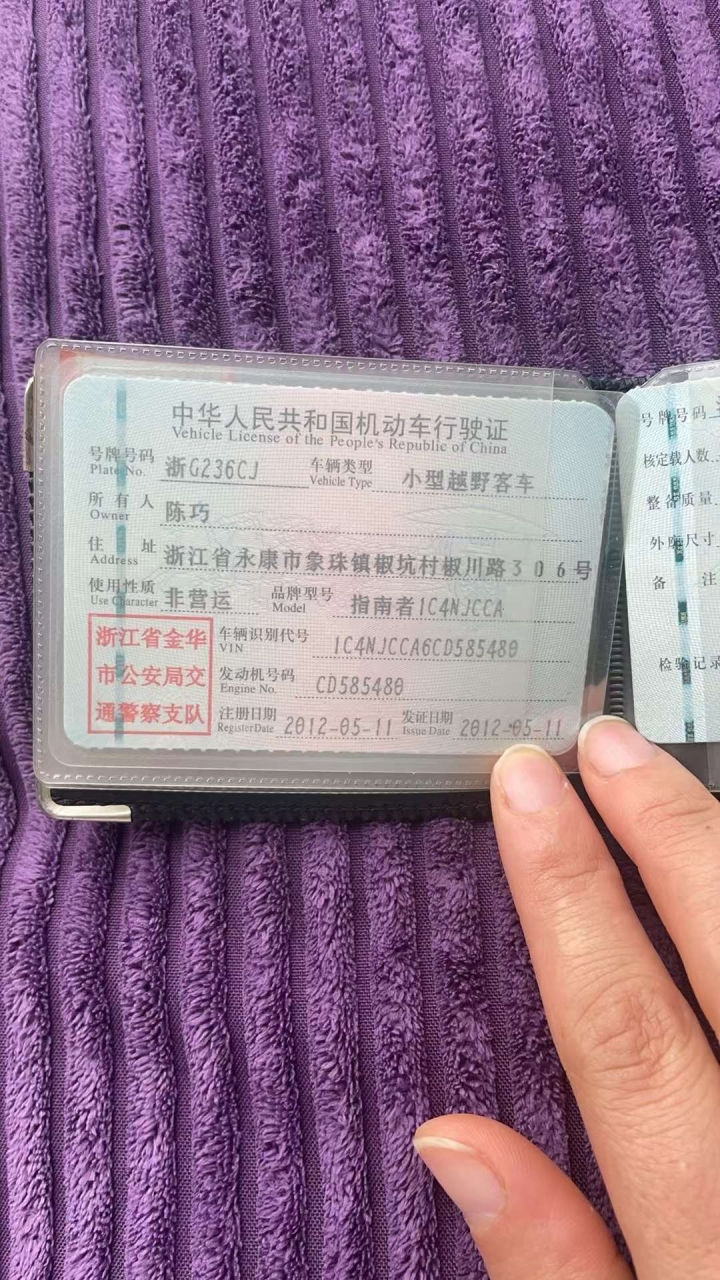 中华人民共和国机动车行驶证
Vehicle License of the People's Republic of China
号牌号码 浙G236CJ 车辆类型 小型越野客车
Plate No. Vehicle Type
所有人 陈巧
Owner
住址 浙江省永康市象珠镇椒坑村椒川路306号
Address
使用性质 非营运 品牌型号 指南者1C4NJCCA
Use Character Model
浙江省金华
市公安局交
通警察支队
车辆识别代号 1C4NJCCA6CD585480
VIN
发动机号码 CD585480
Engine No.
注册日期 2012-05-11 发证日期 2012-05-11
Register Date Issue Date
号牌号码
核定载人数
整备质量
外廓尺寸
备注
检验记录